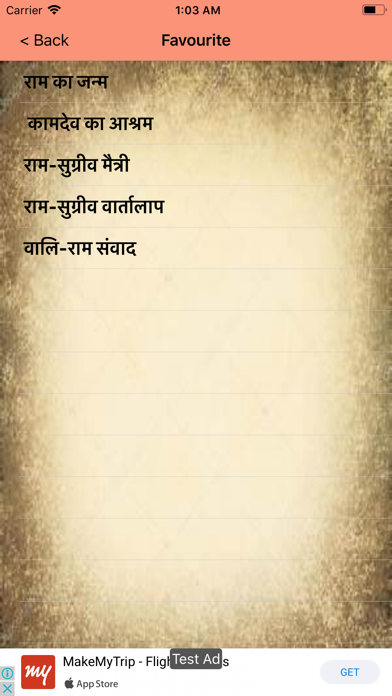 Carrier 1:03 AM
< Back Favourite
राम का जन्म
कामदेव का आश्रम
राम-सुग्रीव मैत्री
राम-सुग्रीव वार्तालाप
वालि-राम संवाद
MakeMyTrip - Test Ad
my App Store GET